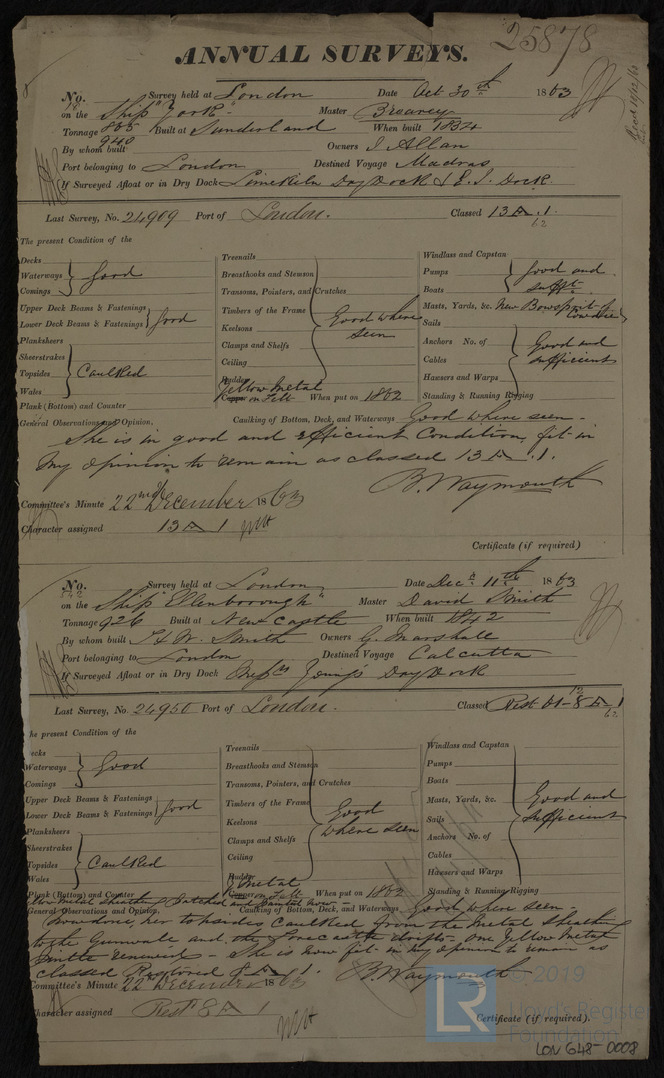 25878
ANNUAL SURVEYS.
No. Survey held at London Date Oct 30th 1863
on the Ship "York" Master
Tonnage 865 940 Built at Sunderland When built 1834
By whom built Owners J Allan
Port belonging to London Destined Voyage Madras
If Surveyed Afloat or in Dry Dock Limekiln Dry Dock & E. I. Dock.
Last Survey, No. 24909 Port of London. Classed 13 A . 1. 62
The present Condition of the
Decks
Waterways } Good
Comings
Upper Deck Beams & Fastenings
Lower Deck Beams & Fastenings } Good
Planksheers
Sheerstrakes
Topsides } Caulked
Wales
Plank (Bottom) and Counter
Treenails
Breasthooks and Stemson
Transoms, Pointers, and Crutches
Timbers of the Frame
Keelsons } Good where seen
Clamps and Shelfs
Ceiling
Rudder
Yellow Metal
Copper on Felt When put on 1862
Windlass and Capstan
Pumps } Good and
Boats Suffit.
Masts, Yards, &c. New Bowsprit of Cowdie
Sails
Anchors No. of } Good and
Cables Sufficient
Hawsers and Warps
Standing & Running Rigging
General Observations and Opinion, Caulking of Bottom, Deck, and Waterways Good where seen -
She is in good and efficient Condition, fit in
my opinion to remain as classed 13 A .1.
B. Waymouth
Committee's Minute 22nd December 1863
Character assigned 13 A 1
Certificate (if required)
No. Survey held at London Date Decr 11th 1863
on the Ship "Ellenborough" Master David Smith
Tonnage 926 Built at Newcastle When built 1842
By whom built T & W. Smith Owners G. Marshall
Port belonging to London Destined Voyage Calcutta
If Surveyed Afloat or in Dry Dock Messrs Youngs Dry Dock
Last Survey, No. 24950 Port of London. Classed Rest 61-8 A 1 62
The present Condition of the
Decks
Waterways } Good
Comings
Upper Deck Beams & Fastenings
Lower Deck Beams & Fastenings } Good
Planksheers
Sheerstrakes
Topsides } Caulked
Wales
Plank (Bottom) and Counter
Treenails
Breasthooks and Stemson
Transoms, Pointers, and Crutches
Timbers of the Frame
Keelsons } Good where seen
Clamps and Shelfs
Ceiling
Rudder
Y Metal
Copper on Felt When put on 1862
Windlass and Capstan
Pumps
Boats
Masts, Yards, &c. } Good and
Sails Sufficient
Anchors No. of
Cables
Hawsers and Warps
Standing & Running Rigging
Metal sheathing Patched and
General Observations and Opinion, Caulking of Bottom, Deck, and Waterways Good where seen -
her topsides caulked from the Metal Sheath
to the Gunwale and the Forecastle - one Yellow Metal
Pintle renewed - She is now fit in my opinion to remain as
classed Restored 8 A 1. B. Waymouth
Committee's Minute 22nd December 1863
Character assigned Rest 8 A 1
Certificate (if required).
© 2019
LR
Lloyd's Register
Foundation
LON 648-0008